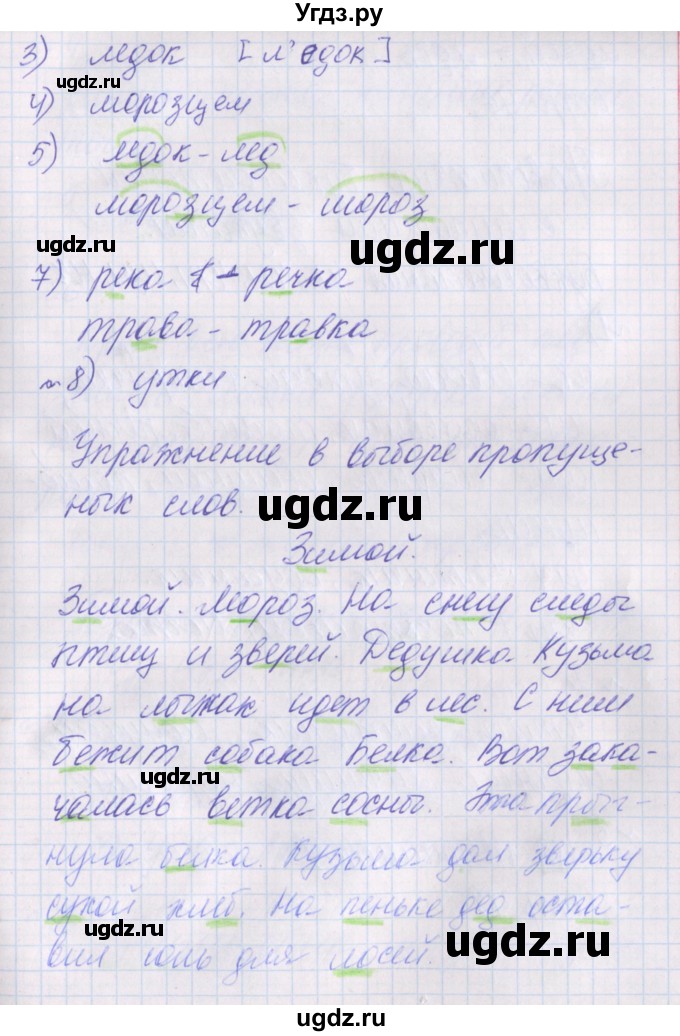 Угдз.ру
3) ледок [л'едок]
ugdz.ru
4) морозцем
5) ледок - лед
морозцем - мороз
ugdz.ru
ugdz.ru
7) река - речка
трава - травка
8) утки
ugdz.ru
Упражнение в выборе пропуще-
ных слов.
ugdz.ru
Зимой.
Зимой. Мороз. На снегу следы
ugdz.ru
птиц и зверей. Дедушка Кузьма
на лыжах идет в лес. С ним
бежит собака Белка. Вот зака-
ugdz.ru
чалась ветка сосны. Эта прыг-
нула белка. Кузьма дал зверьку
сухой хлеб. На пеньке дед оста-
ugdz.ru
ugdz.ru
вил соль для лосей.
ugdz.ru